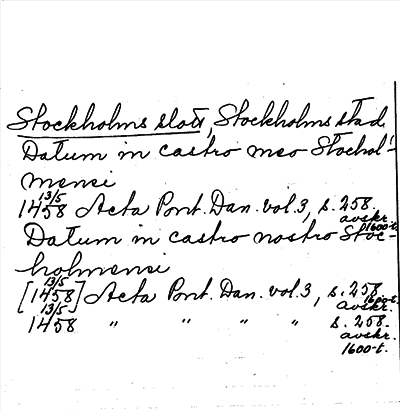 Stockholms slott, Stockholms stad.
Datum in castro meo Stochol-
mensi
13/5
1458 Acta Pont. Dan. vol. 3, s. 258.
avskr. 1600-t.
Datum in castro nostro Stoc-
holmensi
13/5
[1458] Acta Pont. Dan. vol. 3, s. 258.
1600-t.
avskr.
13/5
1458 " " " " s. 258.
avskr.
1600-t.